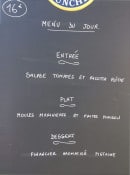 LUNCHS
16€
MENU DU JOUR
ENTRÉE
SALADE TOMATES ET RICOTTA RÔTIE
PLAT
MOULES MARINIERES ET FRITES MAISON
DESSERT
FINANCIER PISTACHE